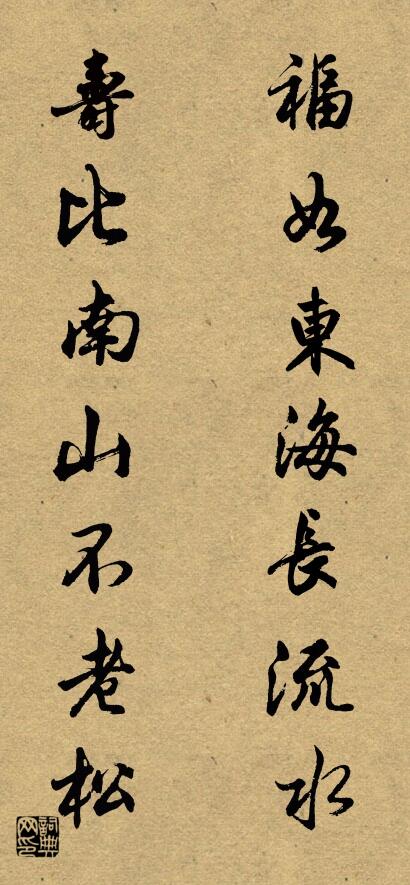 福如東海長流水
壽比南山不老松
詞典網印